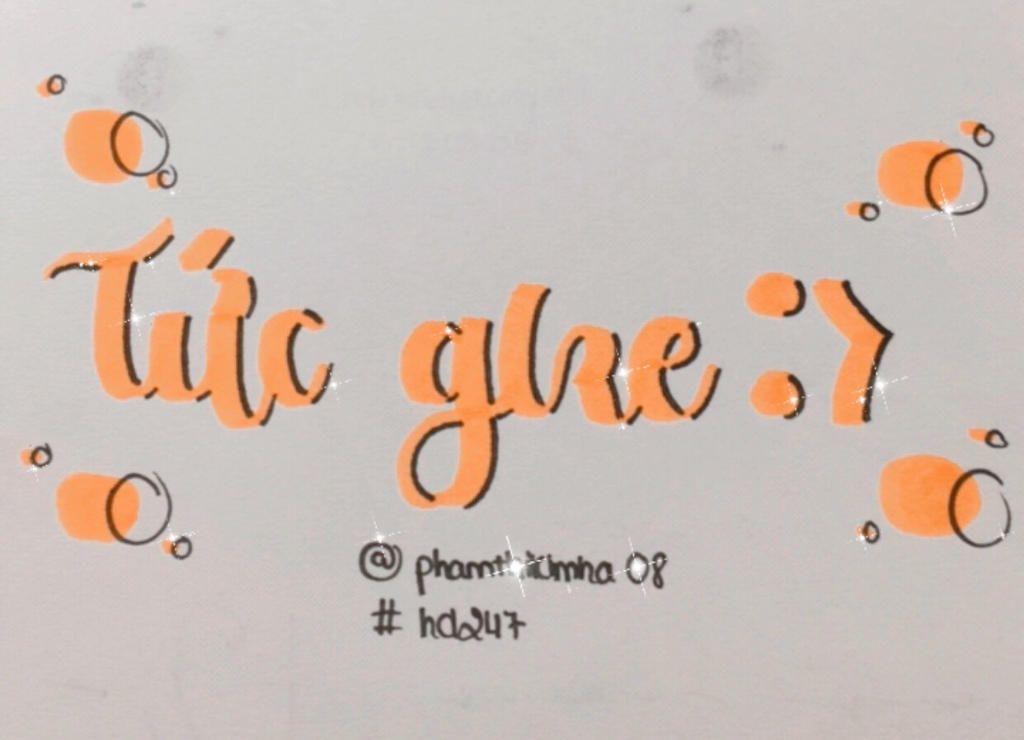 Tức ghe :>
@ phamthikimha 08
# hd247